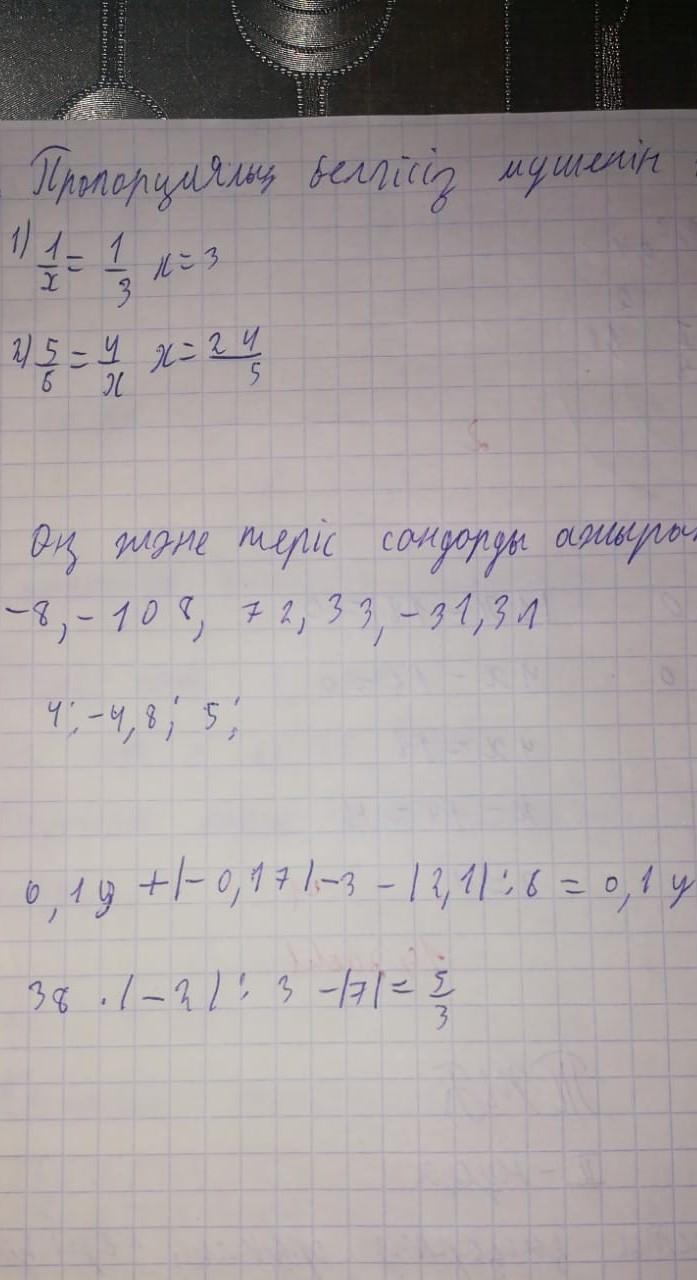 Пропорцияның белгісіз мүшенін
1) 1/x = 1/3 x = 3
2) 5/6 = 4/x x = 24/5
Оң және теріс сандорды ажыра
-8, -108, 72, 33, -31, 31
4; -4,8; 5;
0,1y + |-0,17|-3 - |2,1| : 6 = 0,1y
38 · |-2| : 3 - |7| = 5/3